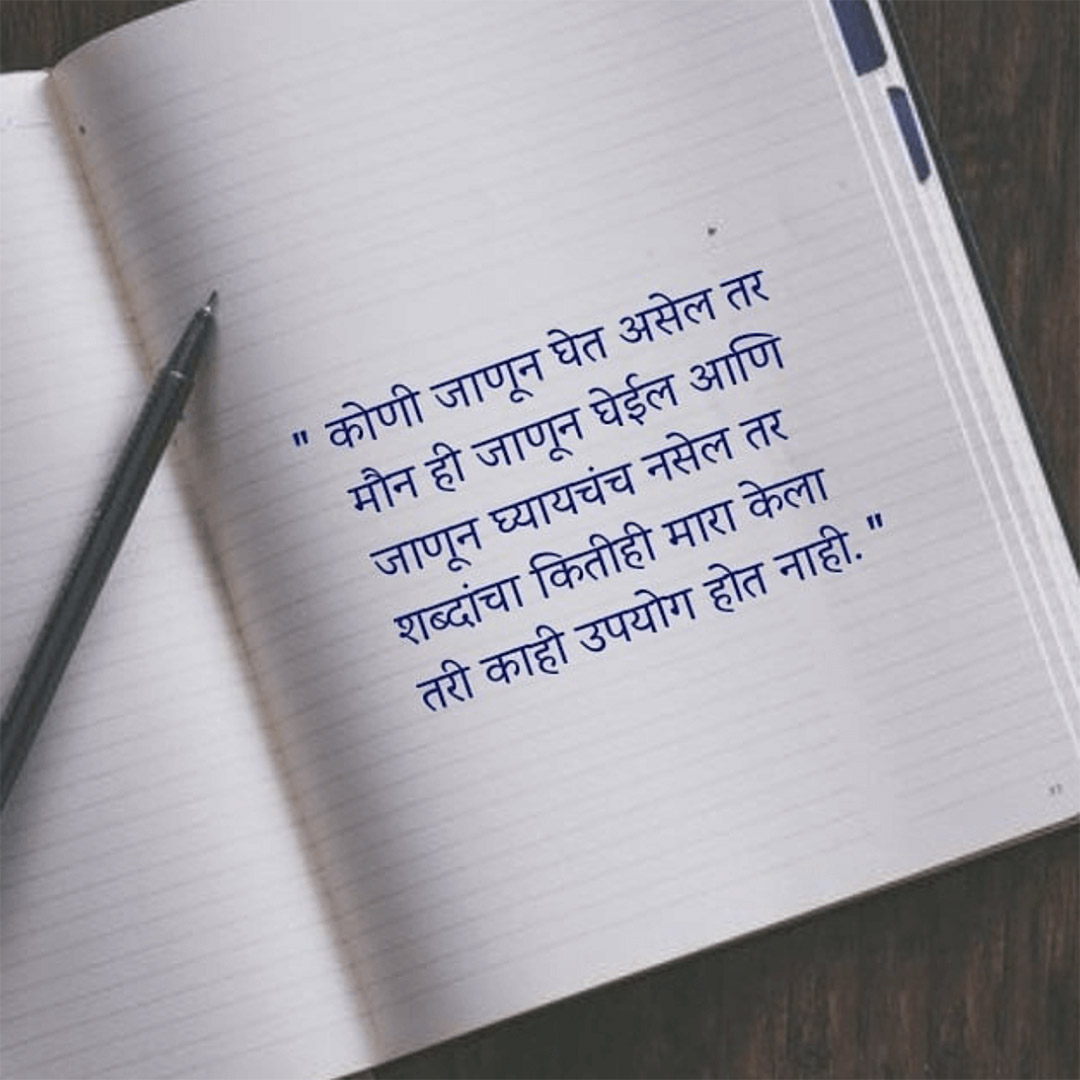 " कोणी जाणून घेत असेल तर
मौन ही जाणून घेईल आणि
जाणून घ्यायचंच नसेल तर
शब्दांचा कितीही मारा केला
तरी काही उपयोग होत नाही. "